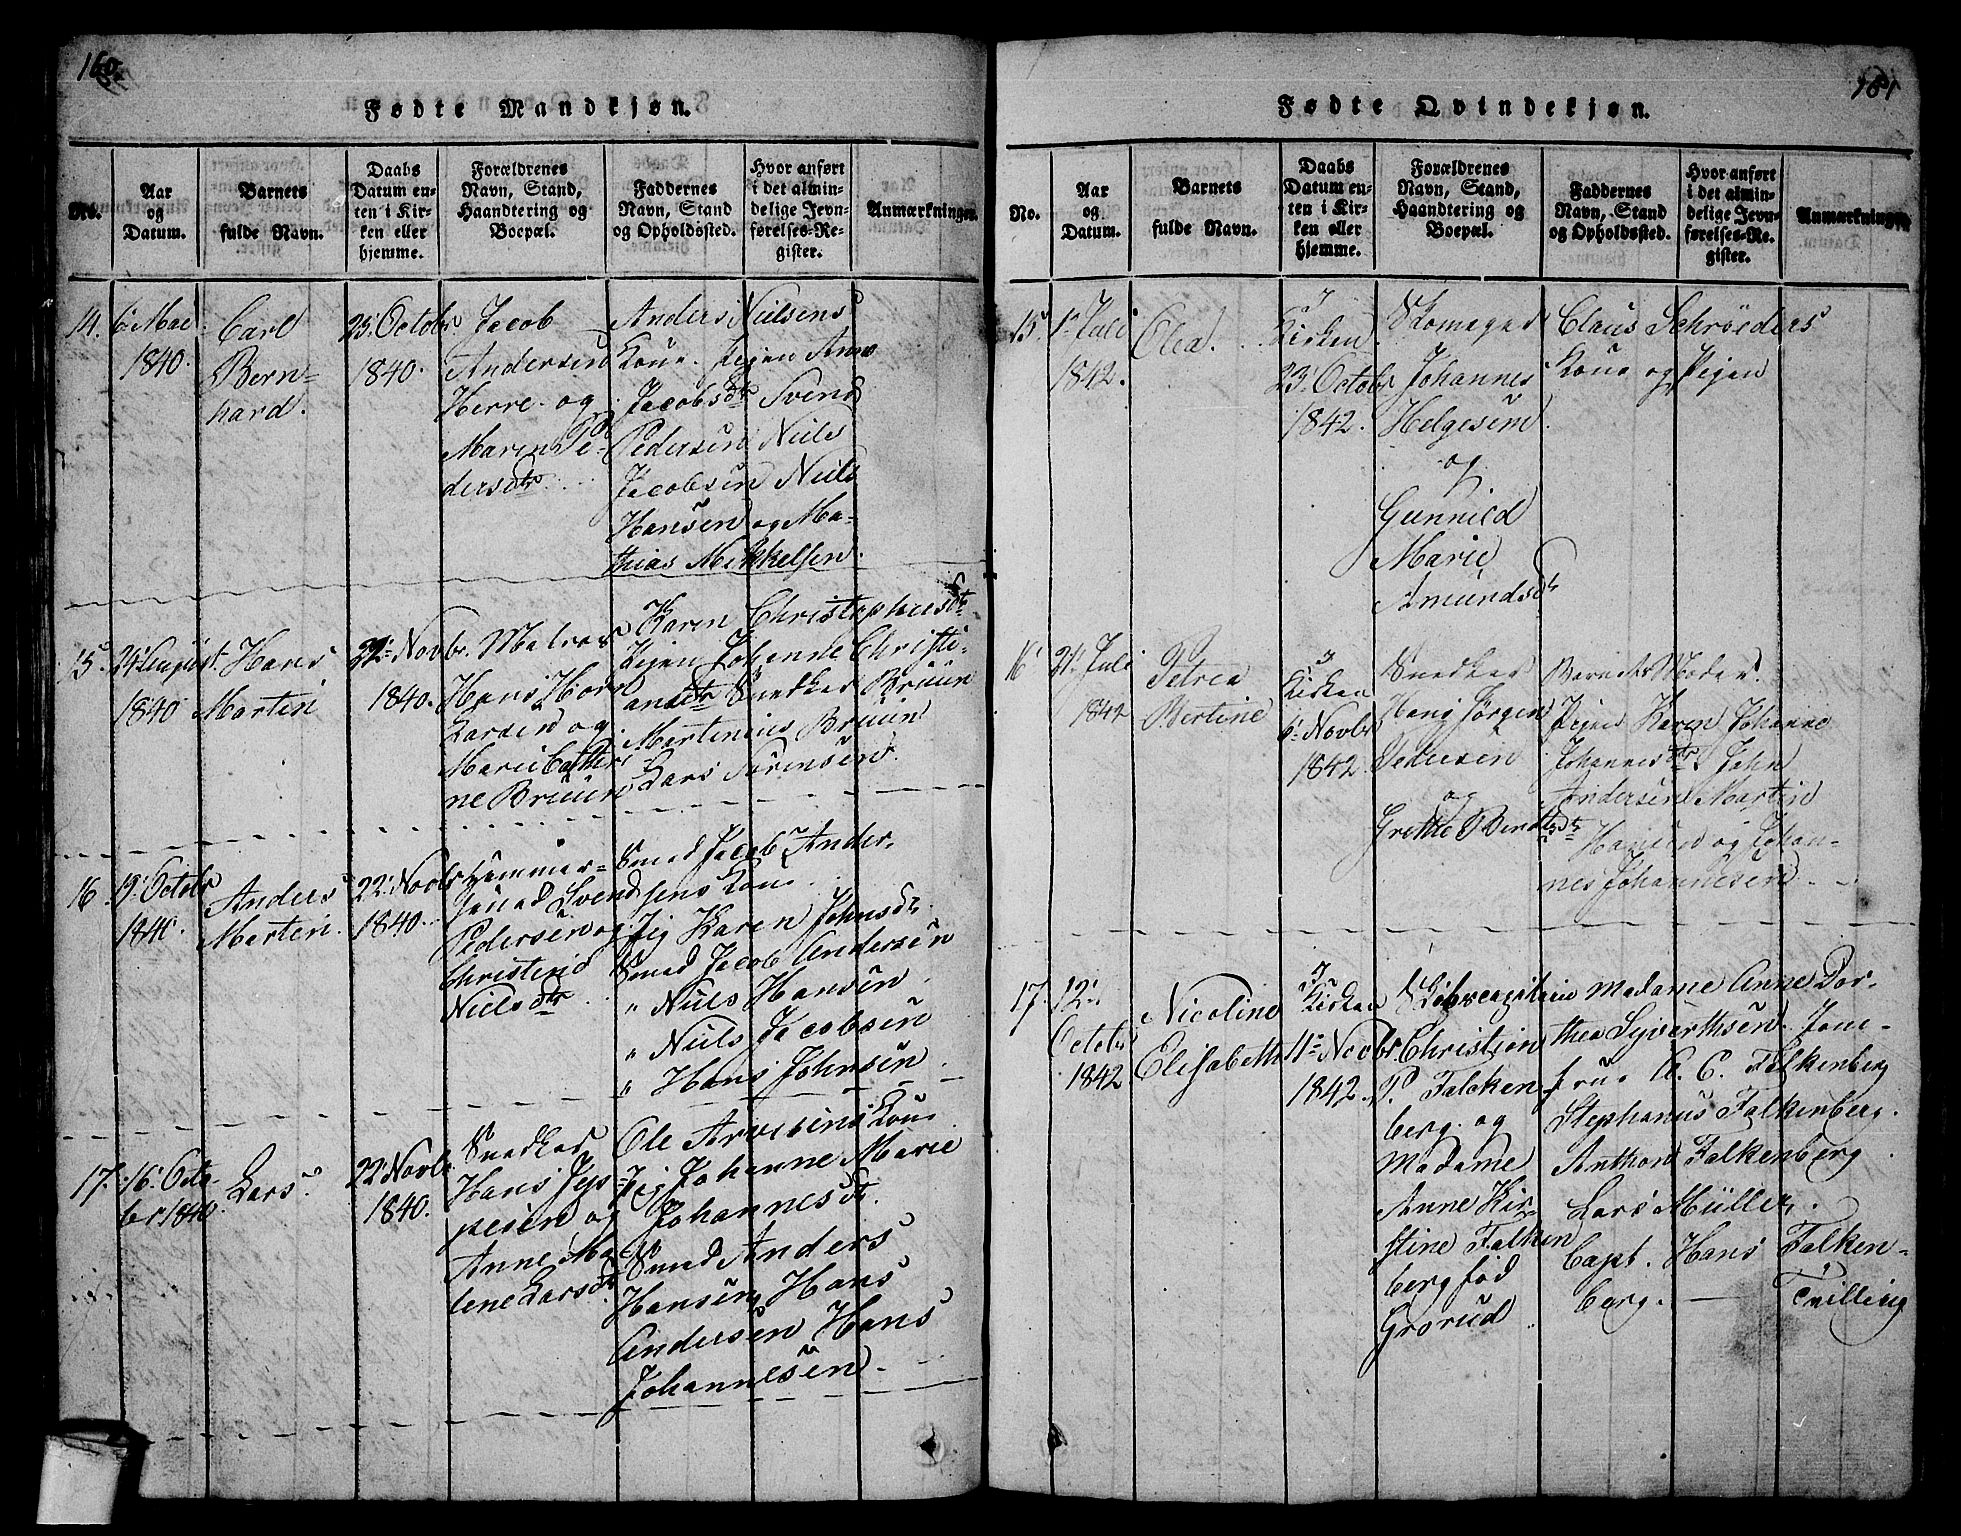 160.
Fødte Mandkjøn.
No.
Aar
og
Datum.
Barnets
fulde Navn.
Daabs
Datum en-
ten i Kir-
ken eller
hjemme.
Forældrenes
Navn, Stand,
Haandtering og
Boepæl.
Faddernes
Navn, Stand
og Opholdssted.
Hvor anført
i det almin-
delige Jevn-
førelses-Re-
gister.
Anmærkninger.
14.
6 Mai
1840.
Carl
Bern=
hard.
25. Octobr
1840.
Jacob
Andersen
Herre og
Maren Pe-
dersdtr
Anders Nielsens
Kone. Pigen Anne
Jacobsdtr Svend
Pedersen Niels
Jacobsen Niels
Hansen og Ma-
thias Mikkelsen.
15.
24 August
1840
Hans
Martin
22. Novbr.
1840.
Matros
Hans
Larsen og
Marie Cathri
ne Bruun
Karen Christophersdtr
Pigen Johanne Christi-
ansdtr Snedker Bruun
Martinius Bruun
Lars Sørensen.
16.
19. Octobr
1840.
Anders
Martin.
22. Novbr
1840.
Hammer=
smed Svend
Pedersen og
Christine
Nielsdtr
Smed Jacob Ander-
sens Kone
Pig Karen Johnsdtr.
Smed Jacob Andersen
" Niels Hansen
" Niels Jacobsen
" Hans Johnsen
17.
16. Octo-
ber 1840.
Lars.
22. Novbr
1840.
Snedker
Hans Jep-
pesen og
Anne Ma
lene Larsdtr
Ole Arvesens Kone
Pig Johanne Marie
Johannesdtr.
Smed Anders
Hansen, Hans
Andersen Hans
Johannesen.
161
Fødte Qvindekjøn.
No.
Aar
og
Datum.
Barnets
fulde Navn.
Daabs
Datum en-
ten i Kir-
ken eller
hjemme.
Forældrenes
Navn, Stand,
Haandtering og
Boepæl.
Faddernes
Navn, Stand
og Opholdssted.
Hvor anført
i det almin-
delige Jevn-
førelses-Re-
gister.
Anmærkninger
15
1. Juli
1842.
Olea.
I
Kirken
23. Octobr
1842.
Skomager
Johannes
Helgesen
og
Gunnild
Marie
Amundsdtr
Claus Schrøeders
Kone og Pigen
16
21. Juli
1842
Petrea
Bertine
I
Kirken
6. Novbr
1842.
Snedker
Hans Jørgen
Pedersen
og
Grethe Berntsdtr
Barnets Moder.
Pigen Karen Johanne
Johannesdtr. John
Andersen Martin
Hansen og Johan-
nes Johannesen
17.
12.
Octobr
1842
Nicoline
Elisabeth
I
Kirken
11. Novbr
1842.
Skibscapitain
Christian
P. Falcken
berg. og
Madame
Anne Kir-
stine Falken
berg fød
Grorud
Madame Anne Dor-
thea Syverthsen. Jom-
frue A. C. Falkenberg
Stephanus Falkenberg.
Anthon Falkenberg
Lars Müller.
Capt. Hans Falken-
berg.
Tvilling